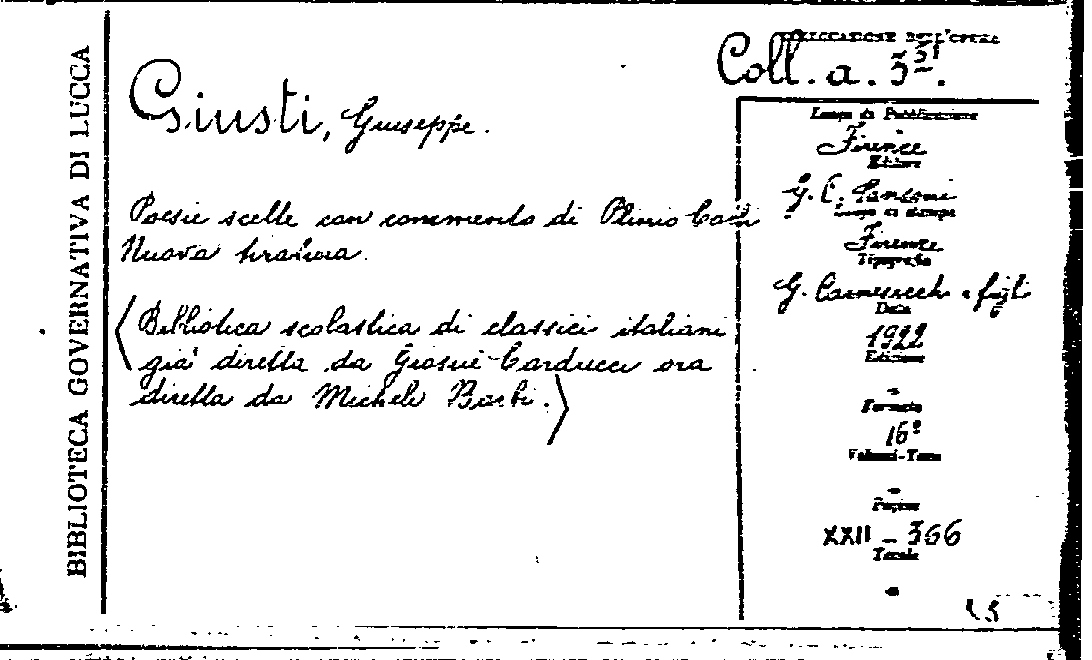 BIBLIOTECA GOVERNATIVA DI LUCCA
COLLOCAZIONE DELL'OPERA
Coll. a. 3⁵¹.
Giusti, Giuseppe.
Poesie scelte con commento di Plinio Carli
Nuova tiratura.
(Biblioteca scolastica di classici italiani
già diretta da Giosuè Carducci ora
diretta da Michele Barbi.)
Luogo di Pubblicazione
Firenze
Editore
G. C. Sansoni
Luogo di stampa
Firenze
Tipografia
G. Carnesecchi e figli
Data
1922
Edizione
-
Formato
16º
Volumi-Tomi
-
Pagine
XXII - 366
Tavole
-